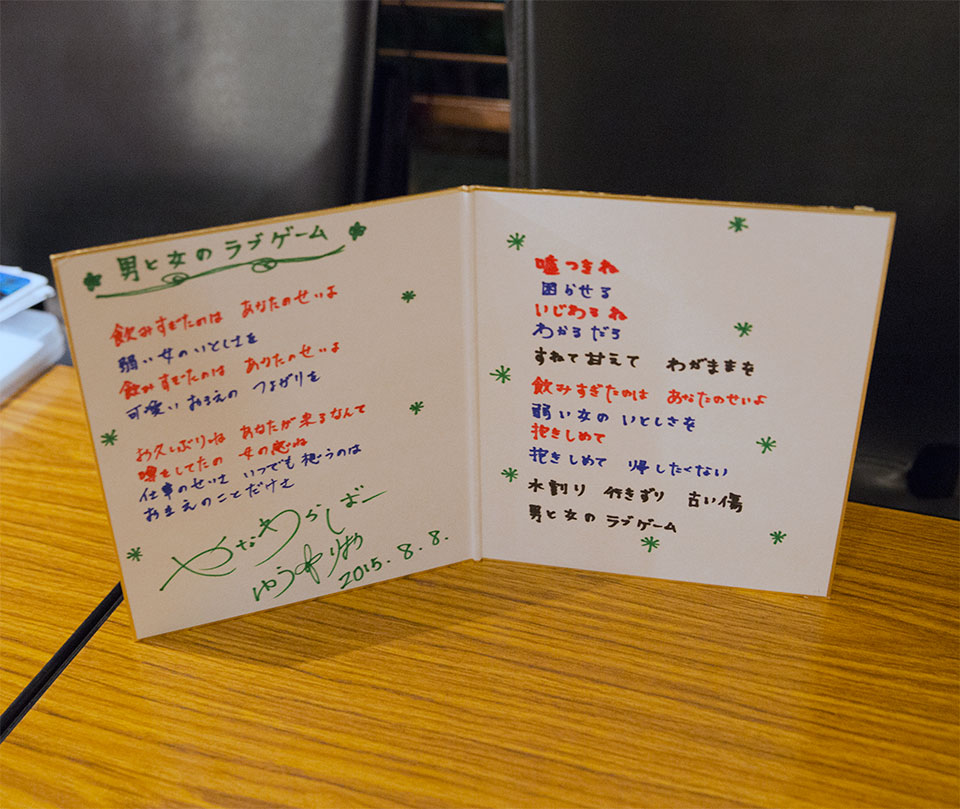 男と女のラブゲーム
飲みすぎたのは あなたのせいよ
弱い女のいとしさを
飲みすぎたのは あなたのせいよ
可愛いおまえの つよがりを
お久しぶりね あなたが来るなんて
噂をしてたの 女の感ね
仕事のせいさ いつでも想うのは
おまえのことだけさ
やなわらばー
ゆうありぃ
2015.8.8.
嘘つきね
困らせる
いじわるね
わかるだろ
すねて甘えて わがままを
飲みすぎたのは あなたのせいよ
弱い女の いとしさを
抱きしめて
抱きしめて 帰したくない
水割り 行きずり 古い傷
男と女の ラブゲーム